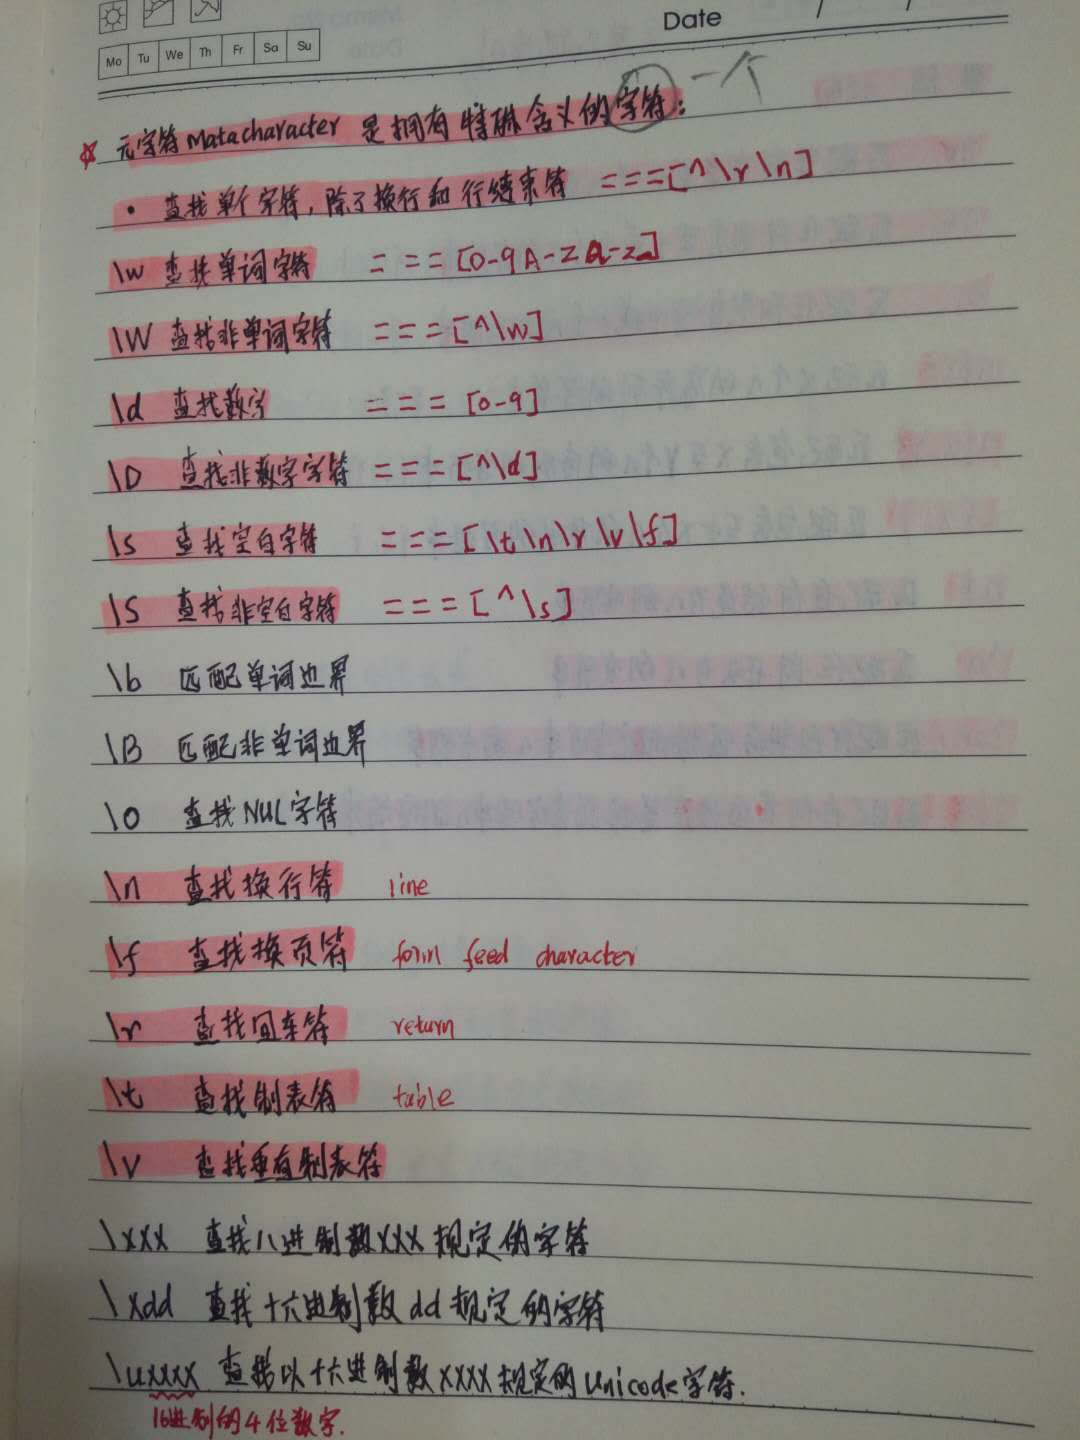 Date / /
Mo Tu We Th Fr Sa Su
☆ 元字符Matacharacter 是拥有特殊含义的字符: 一个
· 查找单个字符,除了换行和行结束符 ===[^\r\n]
\w 查找单词字符 ===[0-9A-Za-z]
\W 查找非单词字符 ===[^\w]
\d 查找数字 ===[0-9]
\D 查找非数字字符 ===[^\d]
\s 查找空白字符 ===[\t\n\r\v\f]
\S 查找非空白字符 ===[^\s]
\b 匹配单词边界
\B 匹配非单词边界
\0 查找NUL字符
\n 查找换行符 line
\f 查找换页符 form feed character
\r 查找回车符 return
\t 查找制表符 table
\v 查找垂直制表符
\xxx 查找八进制数xxx规定的字符
\xdd 查找十六进制数dd规定的字符
\uxxxx 查找以十六进制数xxxx规定的Unicode字符.
16进制的4位数字.